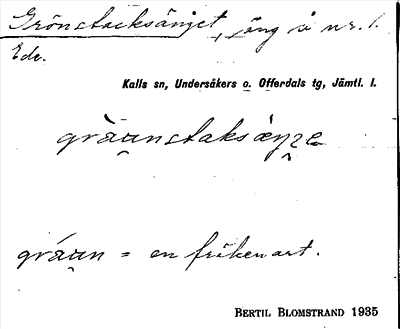 Grönstacksänget, äng å nr. 1.
Ede.
Kalls sn, Undersåkers o. Offerdals tg, Jämtl. l.
gräunstaksæŋʒe
gräun = en fräkenart.
BERTIL BLOMSTRAND 1935